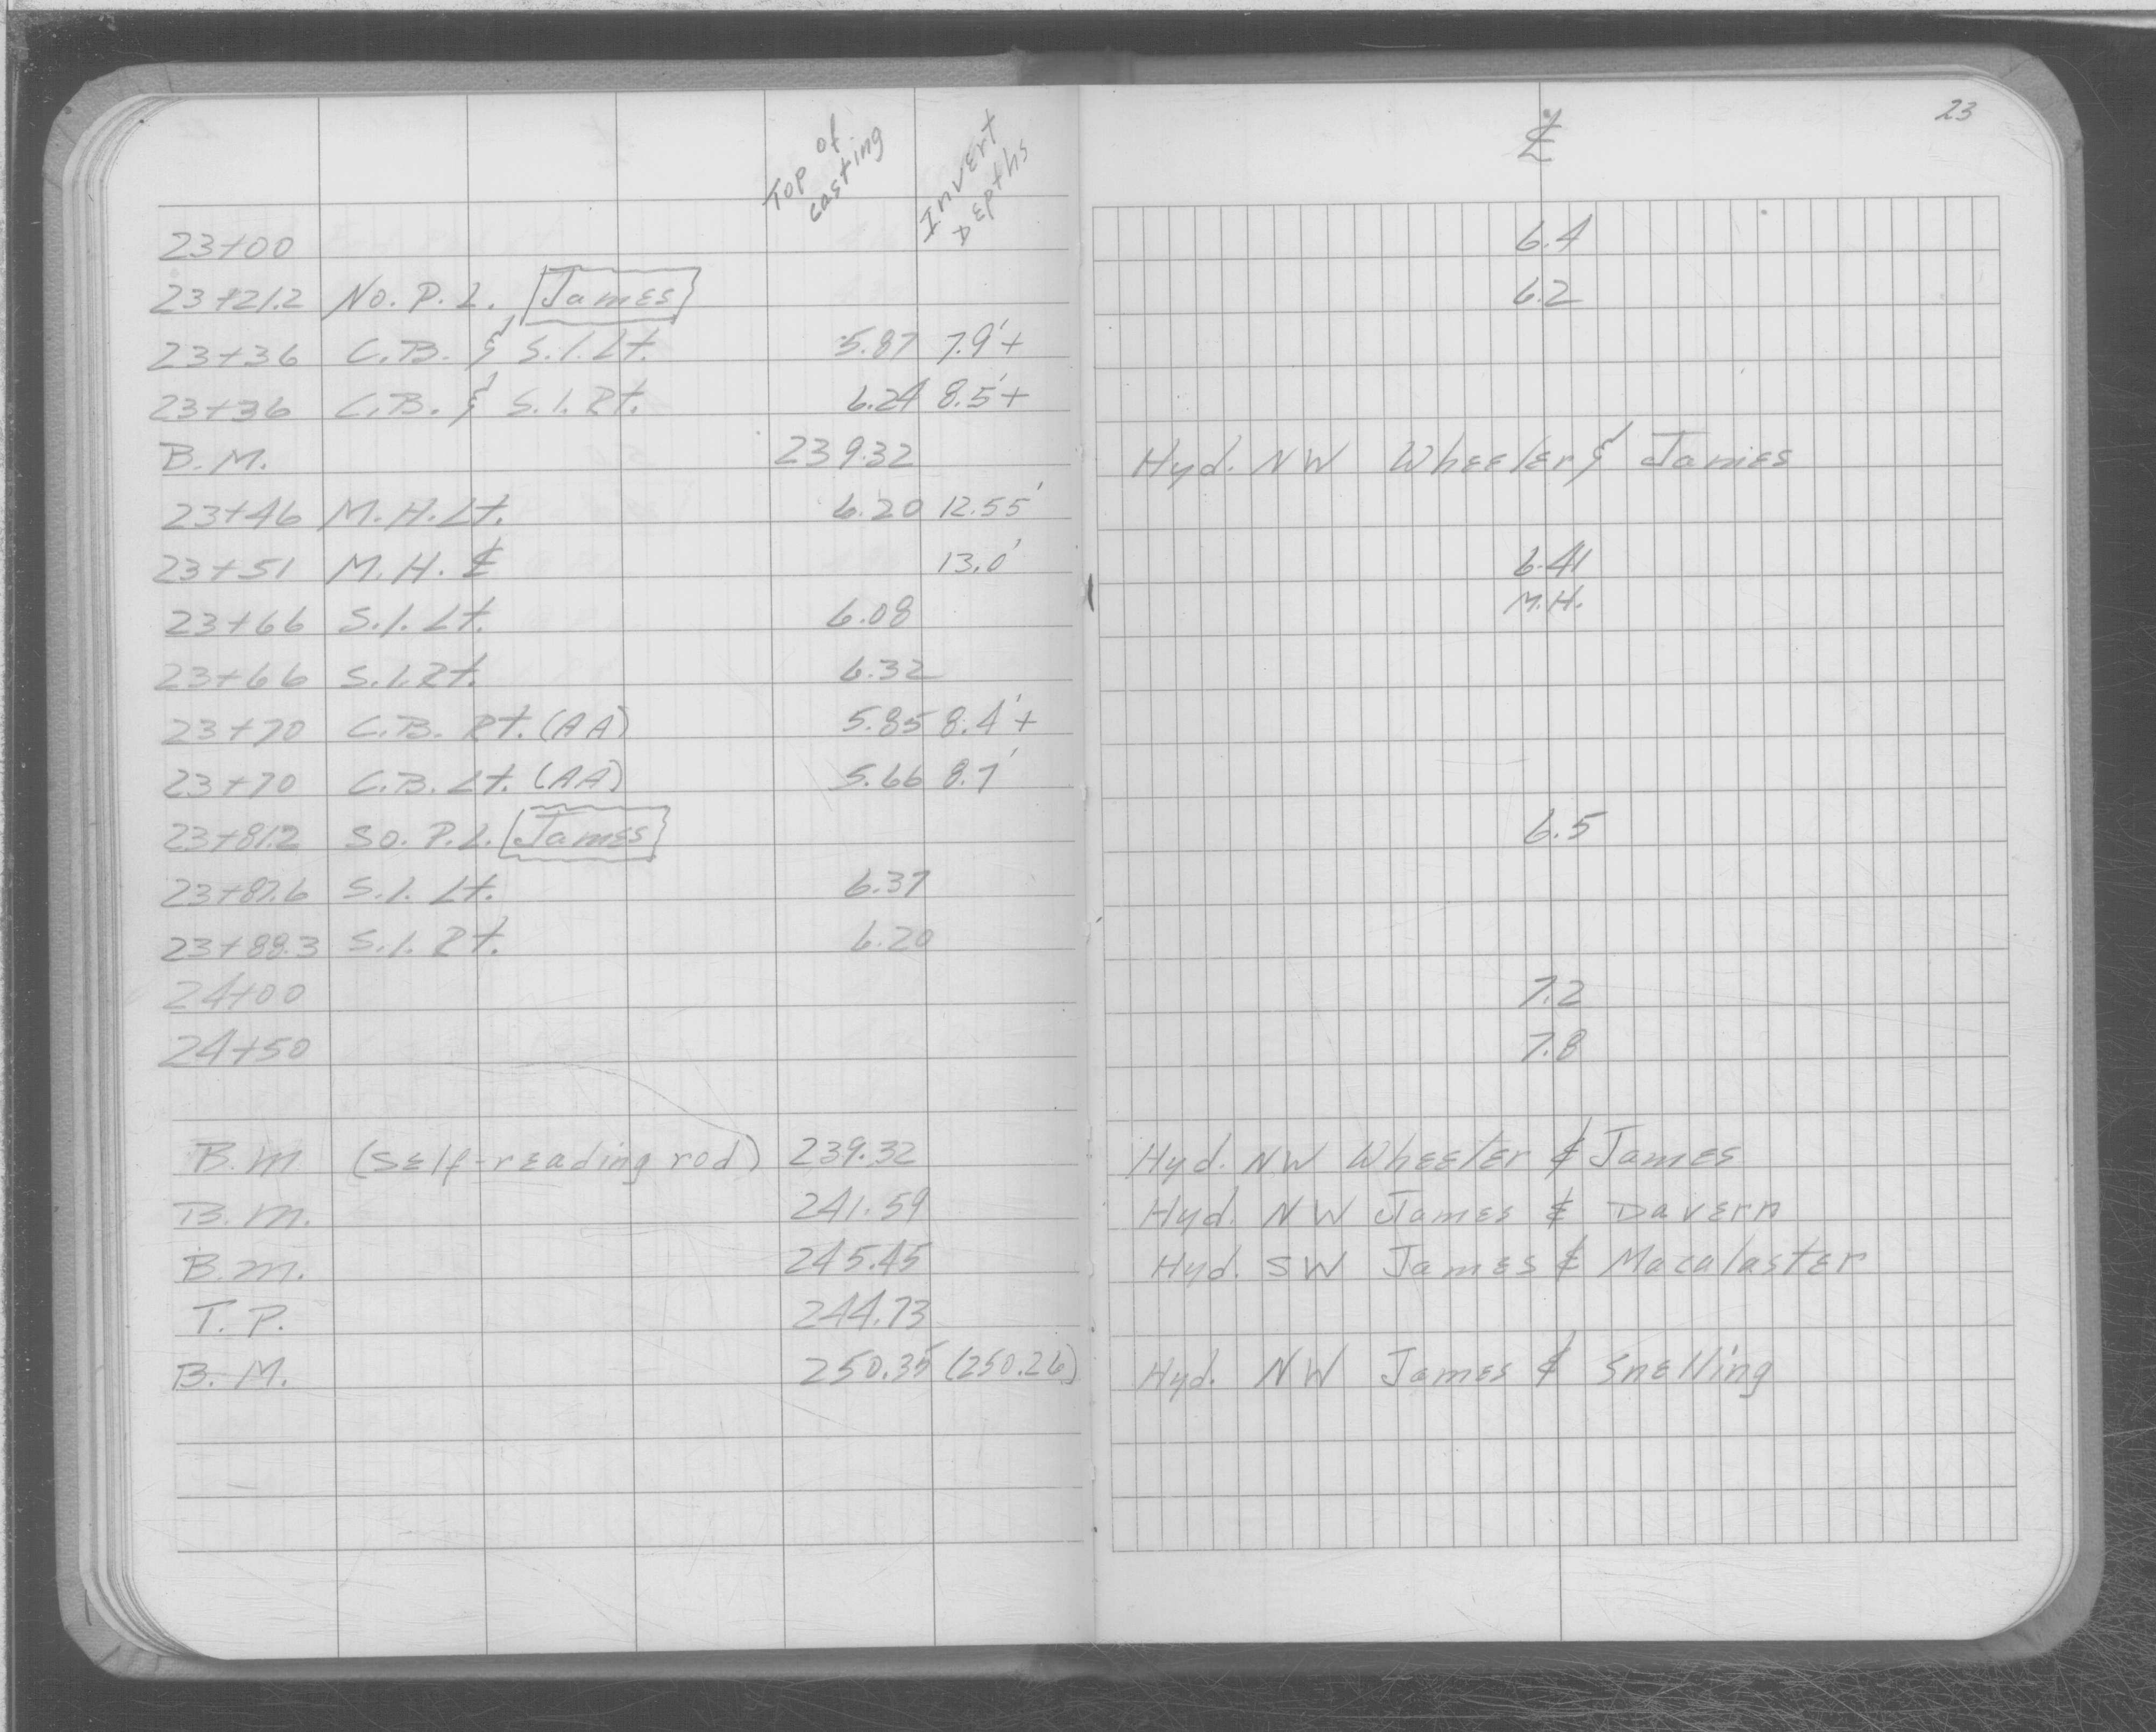 Top of casting Invert depths ℄ 23
23+00 6.4
23+21.2 No. P.L. James 6.2
23+36 C.B. & S.I. Lt. 5.87 7.9'+
23+36 C.B. & S.I. Rt. 6.24 8.5'+
B.M. 239.32 Hyd. NW Wheeler & James
23+46 M.H. Lt. 6.20 12.55'
23+51 M.H. ℄ 13.0' 6.41
M.H.
23+66 S.I. Lt. 6.08
23+66 S.I. Rt. 6.32
23+70 C.B. Rt. (AA) 5.85 8.4'+
23+70 C.B. Lt. (AA) 5.66 8.7'
23+81.2 So. P.L. James 6.5
23+87.6 S.I. Lt. 6.37
23+88.3 S.I. Rt. 6.20
24+00 7.2
24+50 7.8
B.M (Self-reading rod) 239.32 Hyd. NW Wheeler & James
B.M. 241.59 Hyd. NW James & Davern
B.M. 245.45 Hyd. SW James & Macalaster
T.P. 244.73
B.M. 250.35 (250.26) Hyd. NW James & Snelling